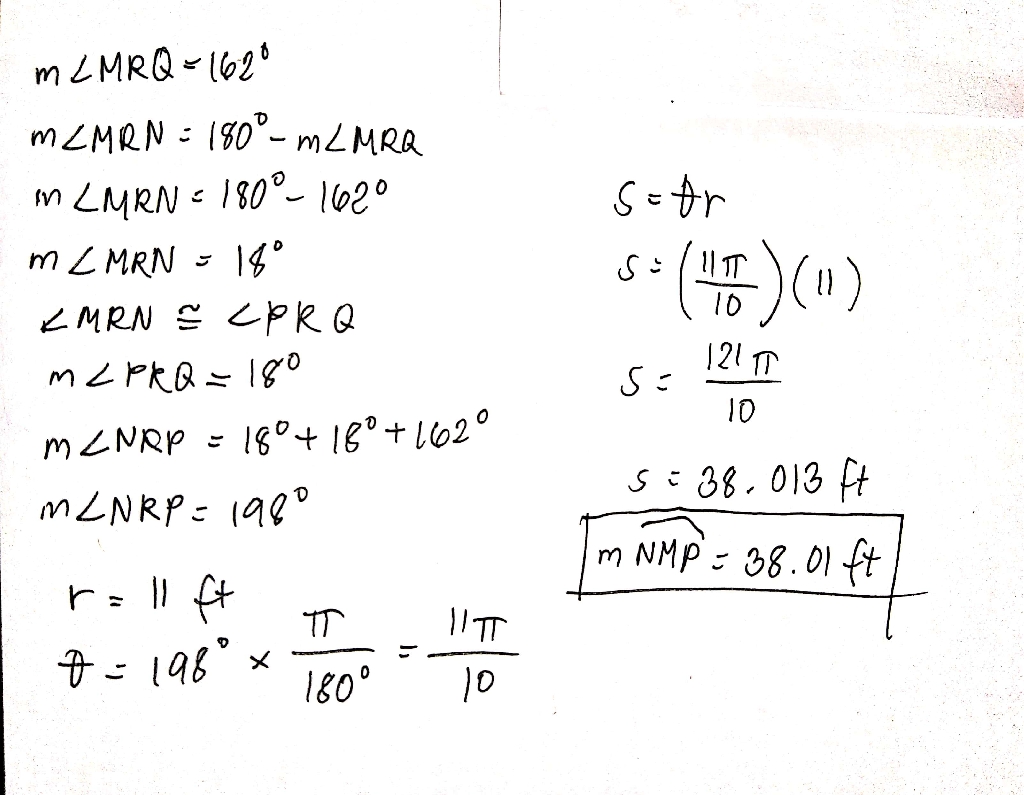 m∠MRQ = 162°
m∠MRN = 180° - m∠MRQ
m∠MRN = 180° - 162°
m∠MRN = 18°
∠MRN ≅ ∠PRQ
m∠PRQ = 18°
m∠NRP = 18° + 18° + 162°
m∠NRP = 198°
r = 11 ft
θ = 198° × π/180° = 11π/10
S = θr
S = (11π/10)(11)
S = 121π/10
S = 38.013 ft
m NMP = 38.01 ft